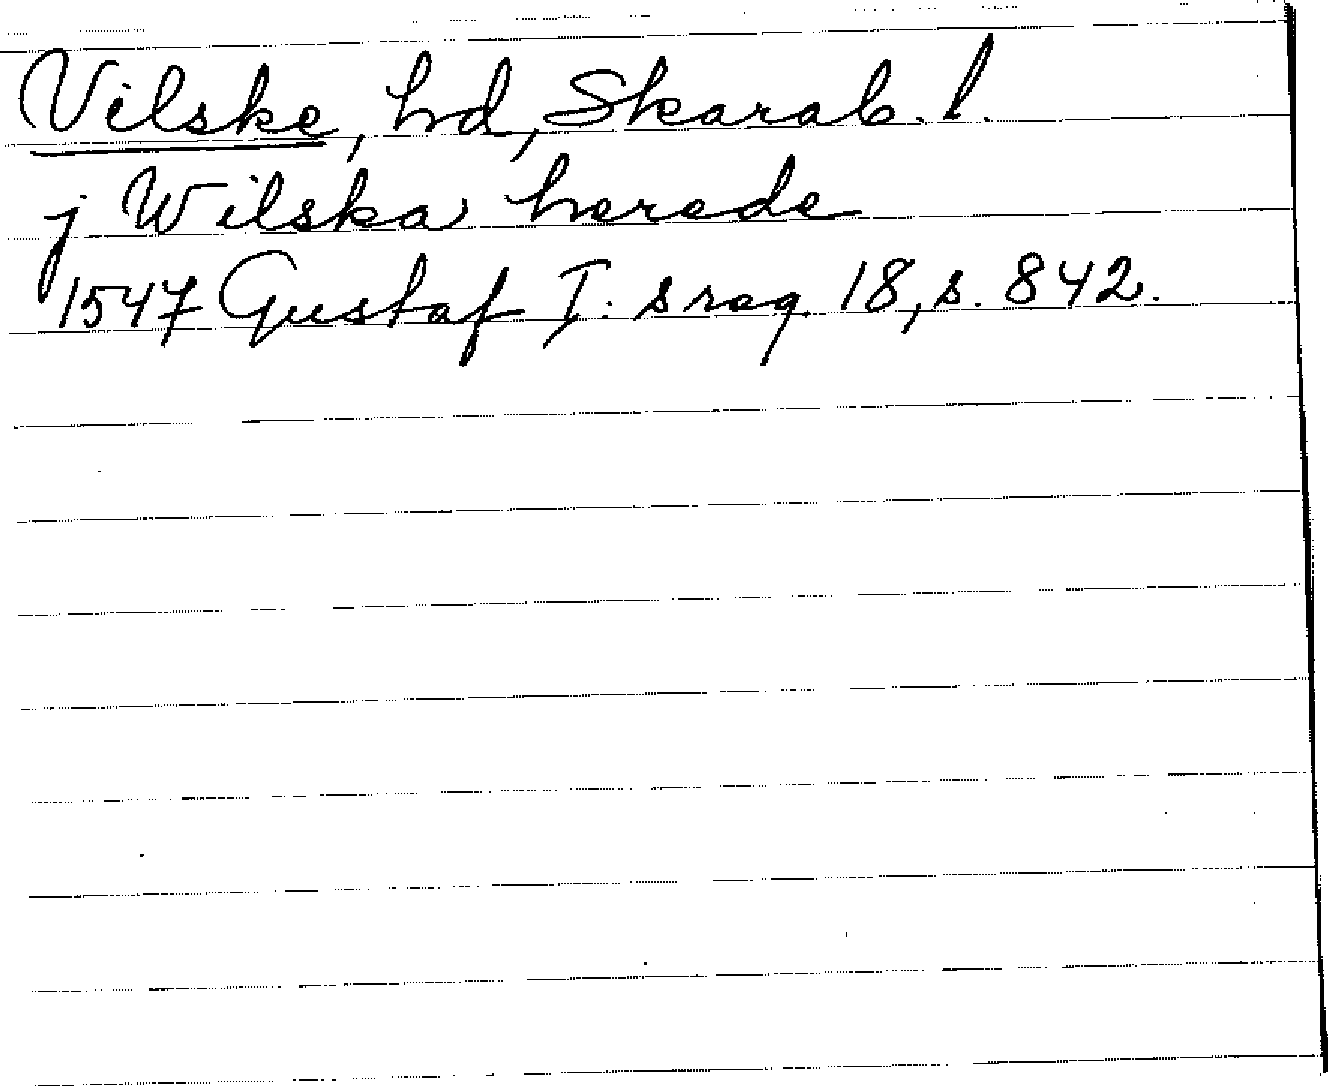 Vilske, hd, Skarab. l.
j Wilska herede
1547 Gustaf I:s reg. 18, s. 842.